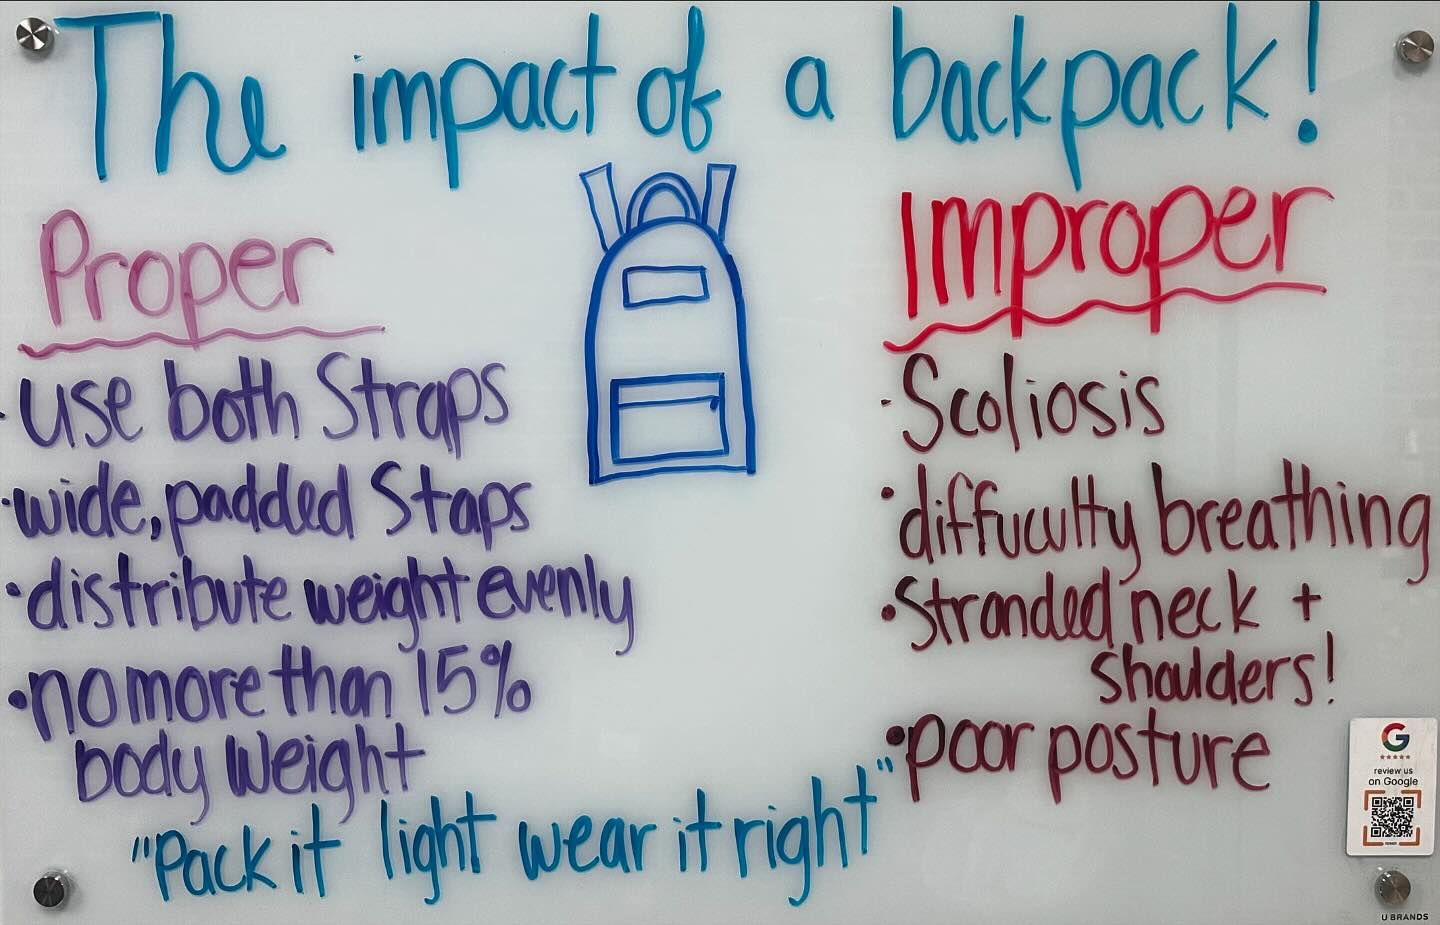 The impact of a backpack!
Proper
·use both Straps
·wide, padded Staps
·distribute weight evenly
·no more than 15%
body weight
Improper
·Scoliosis
·diffuculty breathing
·Stranded neck +
shoulders!
·poor posture
"Pack it light wear it right"
G
review us
on Google
U BRANDS